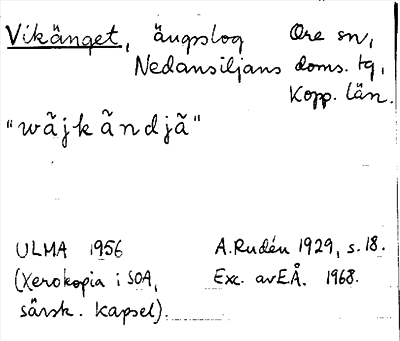 Vikänget, ängslog Ore sn,
Nedansiljans doms. tg,
Kopp. län.
"wãjkãndjã"
ULMA 1956 A. Rudén 1929, s. 18.
(Xerokopia i SOA, Exc. av E.Å. 1968.
särsk. kapsel).